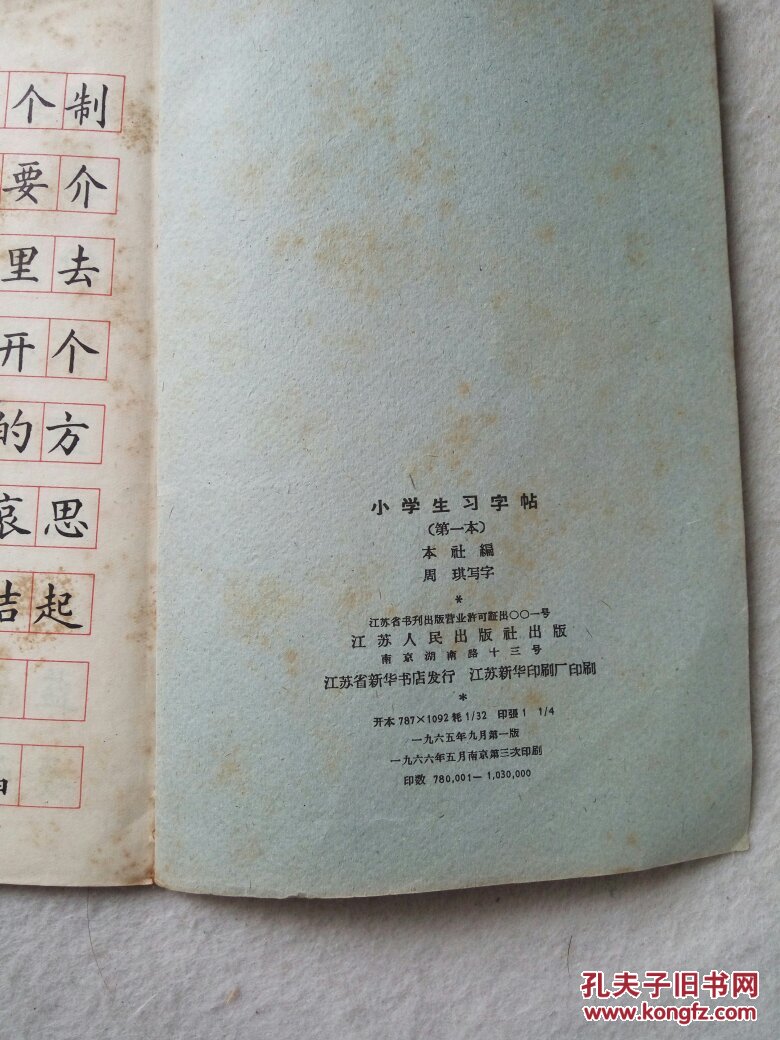 个制
要介
里去
开个
的方
哀思
结起
小学生习字帖
(第一本)
本社編
周琪写字
*
江苏省书刊出版营业許可証出〇〇一号
江苏人民出版社出版
南京湖南路十三号
江苏省新华书店发行 江苏新华印刷厂印刷
*
开本 787×1092 耗 1/32 印張 1 1/4
一九六五年九月第一版
一九六六年五月南京第三次印刷
印数 780,001—1,030,000
孔夫子旧书网
www.kongfz.com